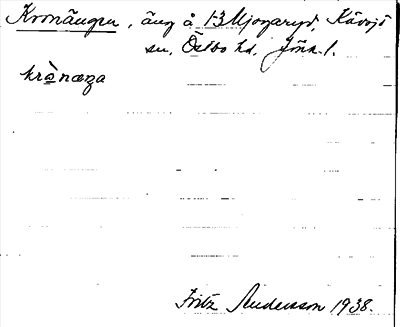 Kronängen, äng å 1-3 Mjogaryd, Kävsjö
sn, Östbo hd. Jönk. l.
krònæŋa
Fritz Andersson 1938.